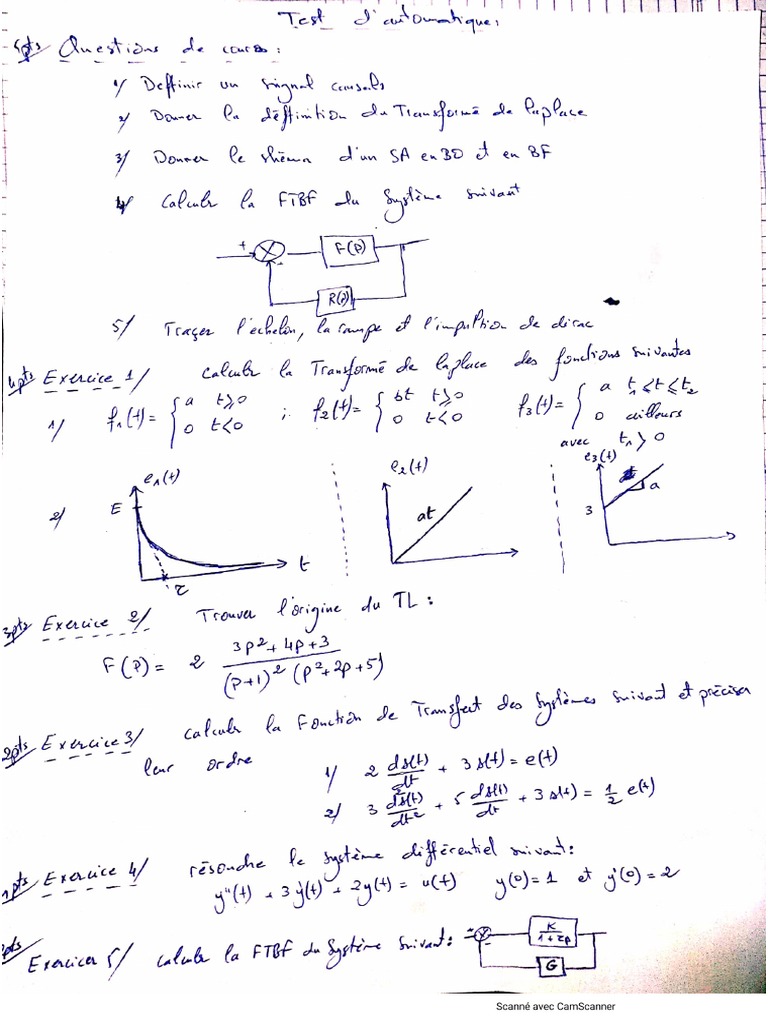 Test d'automatique:
5pts Questions de cours:
1/ Deffinir un signal consals
2/ Donner la déffinition du Transformé de laplace
3/ Donner le shéma d'un SA en BO et en BF
4/ Calculer la FTBF du Système suivant
+ F(p)
- R(p)
5/ Traçer l'échelon, la rampe et l'impultion de dirac
4pts Exercice 1/ calculer la Transformé de laplace des fonctions suivantes
1/ f₁(t) = { a t≥0 ; 0 t<0 ; f₂(t) = { bt t≥0 ; 0 t<0 f₃(t) = { a t₁≤t≤t₂ ; 0 ailleurs
avec t₁>0
2/ e₁(t) E τ t e₂(t) at e₃(t) 3 a
3pts Exercice 2/ Trouver l'origine du TL:
F(p) = 2 (3p²+4p+3) / ((p+1)² (p²+2p+5))
2pts Exercice 3/ calculer la Fonction de Transfert des Systèmes suivant et préciser
leur ordre
1/ 2 ds(t)/dt + 3 s(t) = e(t)
2/ 3 d²s(t)/dt² + 5 ds(t)/dt + 3 s(t) = 1/2 e(t)
Exercice 4/ résoudre le système différentiel suivant:
y''(t) + 3y'(t) + 2y(t) = u(t) y(0)=1 et y'(0)=2
Exercice 5/ calculer la FTBF du Système suivant: K/(1+τp) G
Scanné avec CamScanner